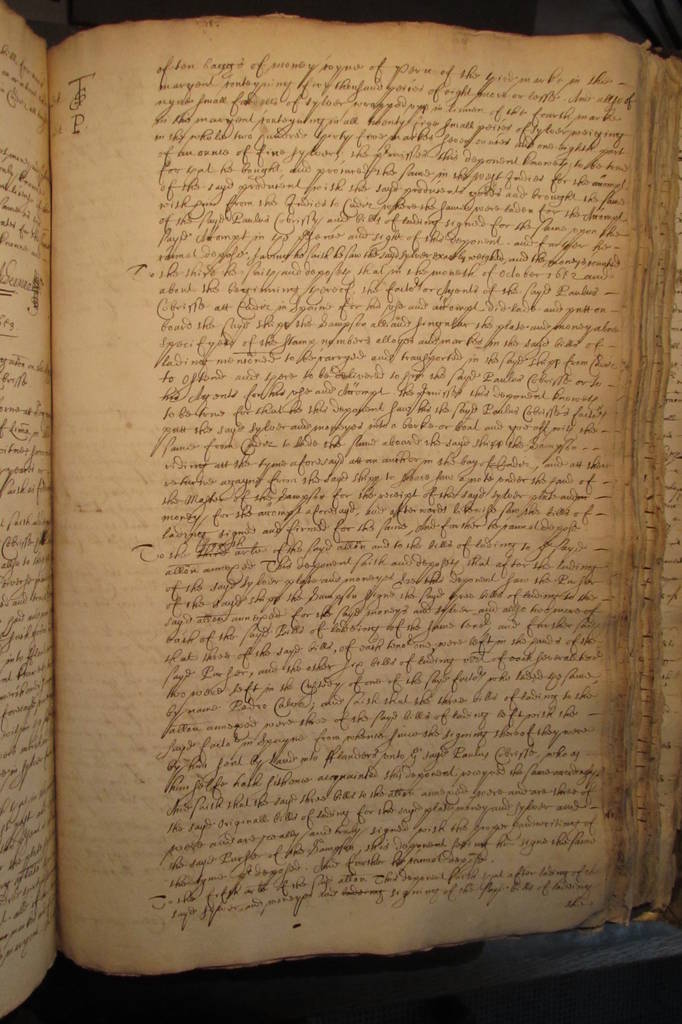 of ten baggs of money coyne of Peru of the third marke in the
margent conteyning ffive thousand peices of eight, more or lesse And also of
nyne small of sylver wrapped upp in linnen of the fourth marke
in the margent conteyning in all twenty small peices of sylver weighing
in the whole two hundred markes seven ounces and one eighth part
of an ounce of fine sylver, the premisses this deponent knoweth to be true
for that he bought and procured the same in the West Indies for the accompt
of the sayd producent with the sayd producents goods and brought the same
with him from the Indies to Cadiz where the same were laden for the accompt
of the sayd Paulus Cobrisse and bills of lading signed for the same upon the
sayd Accompt in the presence and sight of this deponent. And further hee
cannot depose, saving he saith he saw the said sylver exactly weighed, and the money counted
To the third he saith and deposeth that in the moneth of October 1652 and
about the beginning thereof, the factor or Agents of the sayd Paulus
Cobrisse att Cadiz in Spaine for his use and accompt did lade and putt on
board the sayd shipp the Sampson all and singular the plate and money above
specifyed of the stamp numbers alloyes and markes in the said bills of
lading mentioned to be carryed and transported in the sayd shipp from Cadiz
to Ostend and there to be delivered to him the sayd Paulus Cobrisse or to
his Agents for his use and Accompt. the premisses this deponent knoweth
to be true for that he this deponent saw the sayd Paulus Cobrisse's factor
putt the sayd sylver and moneyes into a barke or boat and goe off with the
same from Cadiz to lade the same aboard the sayd shipp the Sampson
riding att the tyme aforesayd att an anchor in the bay of Cadiz, and att their
returne againe from the sayd shipp to shore saw a note under the hand of
the Master of the Sampson for the receipt of the sayd sylver plate and
money for the accompt aforesayd, and afterwards likewise saw the bills of
lading signed and firmed for the same And further he cannot depose
To the arle of the sayd allon and to the bills of lading to the sayd
allon annexed This deponent saith and deposeth that after the lading
of the sayd sylver plate and moneyes hee this deponent saw the Purser
of the sayd shipp the Sampson signe the sayd three bills of lading to the
sayd allon annexed for the sayd moneys and sylver, and also two more of
each of the sayd Bills of lading of the same tenor, and further saith
that three of the sayd bills, of each tenor one, were left in the hands of the
sayd Purser, and the other six bills of lading two of each severall tenor
two were left in the Custody of one of the sayd factors who laded the same,
by name Pedro and saith that the three bills of lading to the
allon annexed were three of the sayd bills of lading left with the
sayd factor in Spayne from whence since the signing thereof they were
by him sent by land into Flanders unto the sayd Paulus Cobrisse who as
himselfe hath sithence acquainted this deponent receyved the same accordingly
And saith that the said three bills to the allon annexed were and are three of
the sayd originall bills of lading for the sayd plate money and sylver and
were and are really and truly signed with the proper handwriting of
the sayd Purser of the Sampson, this deponent seeing him signe the same
the tyme predeposed. And further he cannot depose.
To the fifth arle of the sayd allon This deponent saith that after lading of the
sayd sylver, and moneyes and signing of the sayd bills of lading